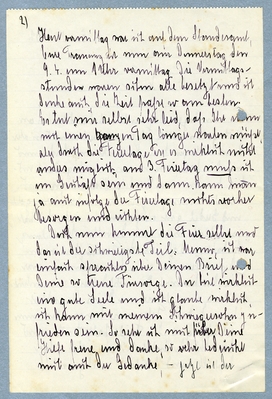 2)
Heut vormittag war ich auf dem Standesamt,
Eure Trauung ist nun am Donnerstag den
9. 4. um 1 Uhr vormittag. Die Vormittags-
stunden waren schon alle besetzt und ich
denke auch, die Zeit paßt so am besten.
Es tut mir selbst sehr leid, daß Ihr
nun einen Tag länger warten müßt
aber durch die Feiertage ist es wirklich nicht
anders möglich, am 3. Feiertag muß ich
im Geschäft sein und dann kann man
ja auch infolge der Feiertage nichts vorher
besorgen und richten.
Doch nun kommt die Feier selbst und
das ist der schwierigste Teil. Menne, ich war
einfach sprachlos über Deinen Brief, und
Deine so treue Fürsorge. Du bist wirklich
eine gute Seele und ich glaube wirklich
ich kann mit meinem Schwiegersohn zu-
frieden sein. So sehr ich mich über Deine
Hilfe freue und danke, so sehr bedrückt
mich auch der Gedanke – jetzt ist der